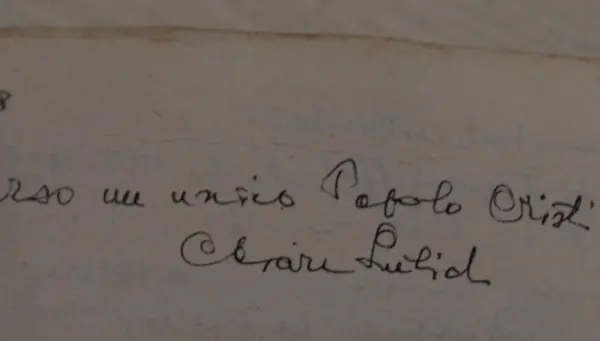 rso un unico Popolo Cristi
Chiara Lubich